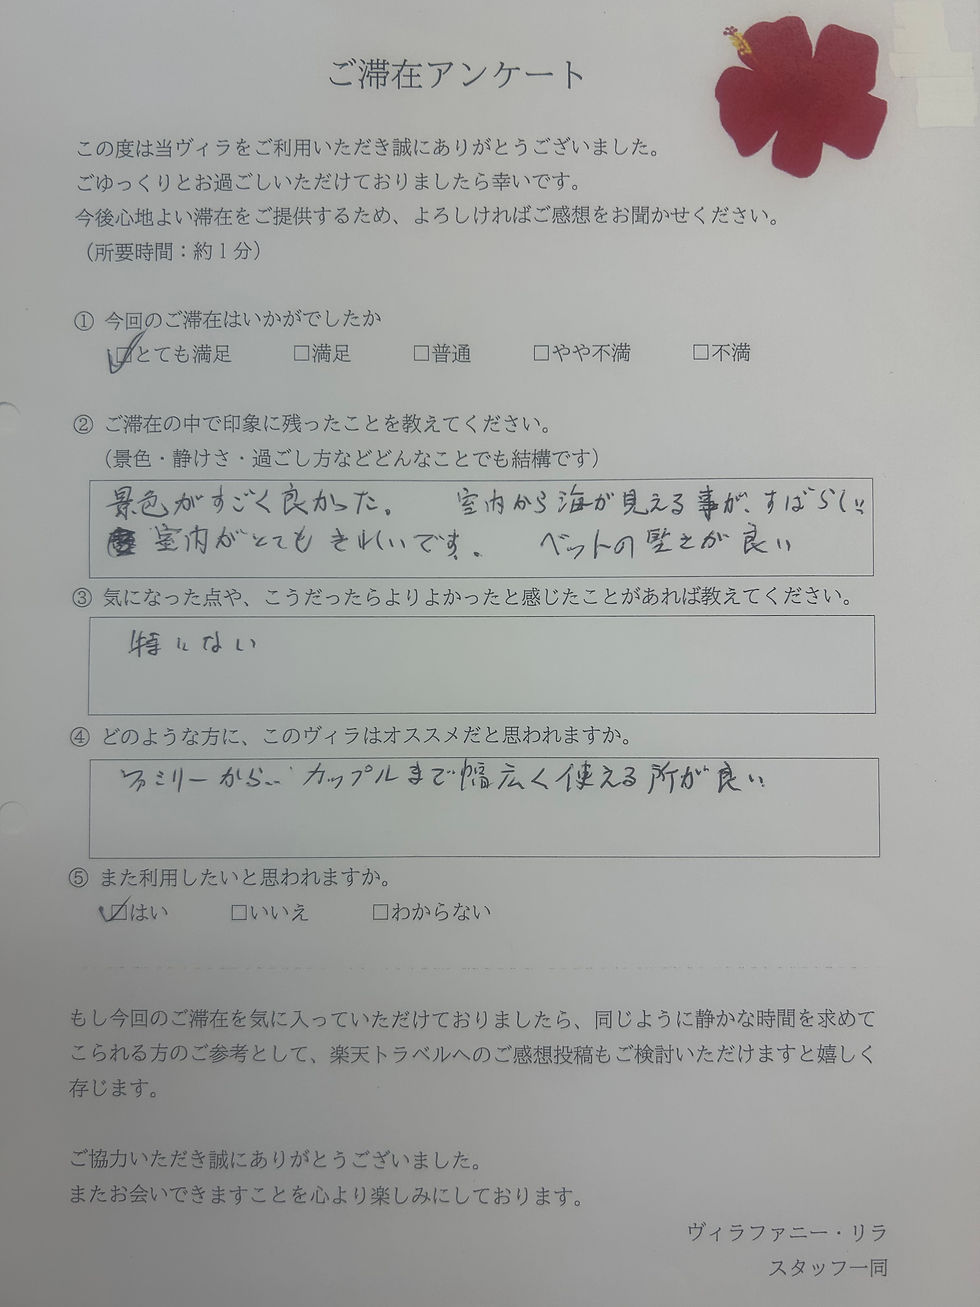 ご滞在アンケート
この度は当ヴィラをご利用いただき誠にありがとうございました。
ごゆっくりとお過ごしいただけておりましたら幸いです。
今後心地よい滞在をご提供するため、よろしければご感想をお聞かせください。
（所要時間：約１分）
① 今回のご滞在はいかがでしたか
☑とても満足 □満足 □普通 □やや不満 □不満
② ご滞在の中で印象に残ったことを教えてください。
（景色・静けさ・過ごし方などどんなことでも結構です）
景色がすごく良かった。 室内から海が見える事が、すばらしい
室内がとてもきれいです。 ベットの堅さが良い
③ 気になった点や、こうだったらよりよかったと感じたことがあれば教えてください。
特にない
④ どのような方に、このヴィラはオススメだと思われますか。
ファミリーから、カップルまで幅広く使える所が良い
⑤ また利用したいと思われますか。
☑はい □いいえ □わからない
もし今回のご滞在を気に入っていただけておりましたら、同じように静かな時間を求めて
こられる方のご参考として、楽天トラベルへのご感想投稿もご検討いただけますと嬉しく
存じます。
ご協力いただき誠にありがとうございました。
またお会いできますことを心より楽しみにしております。
ヴィラファニー・リラ
スタッフ一同